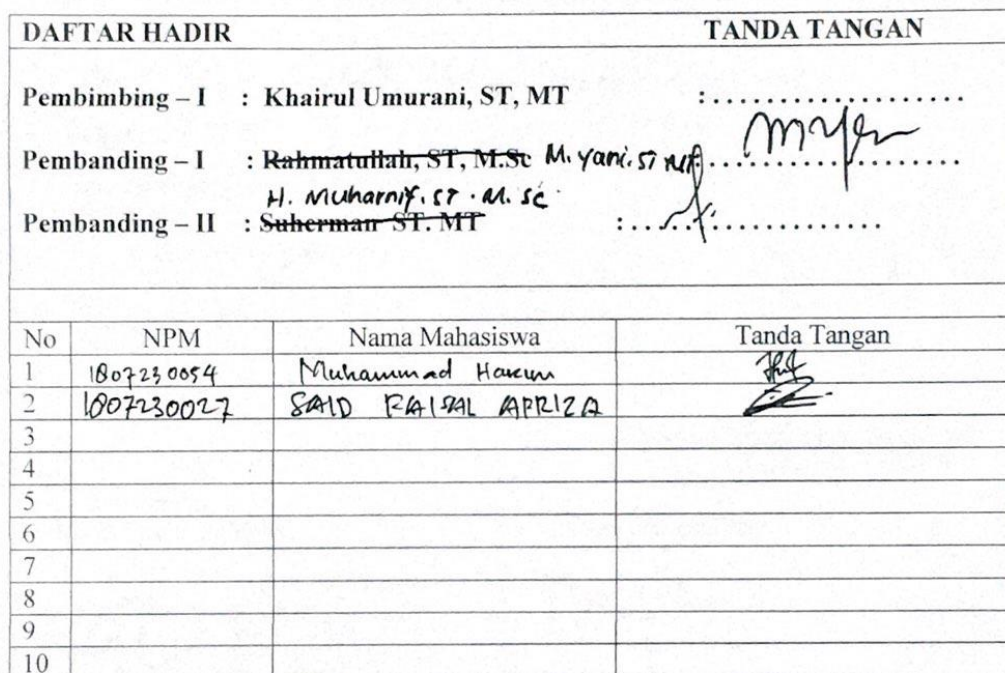 DAFTAR HADIR TANDA TANGAN
Pembimbing – I : Khairul Umurani, ST, MT :.....................
Pembanding – I : Rahmatullah, ST, M.Sc M. Yani. ST MT .....................
H. Muharnif. ST. M. Sc
Pembanding – II : Suherman ST. MT :.....................
No NPM Nama Mahasiswa Tanda Tangan
1 1807230054 Muhammad Hakim
2 1807230027 SAID FAISAL APRIZA
3
4
5
6
7
8
9
10